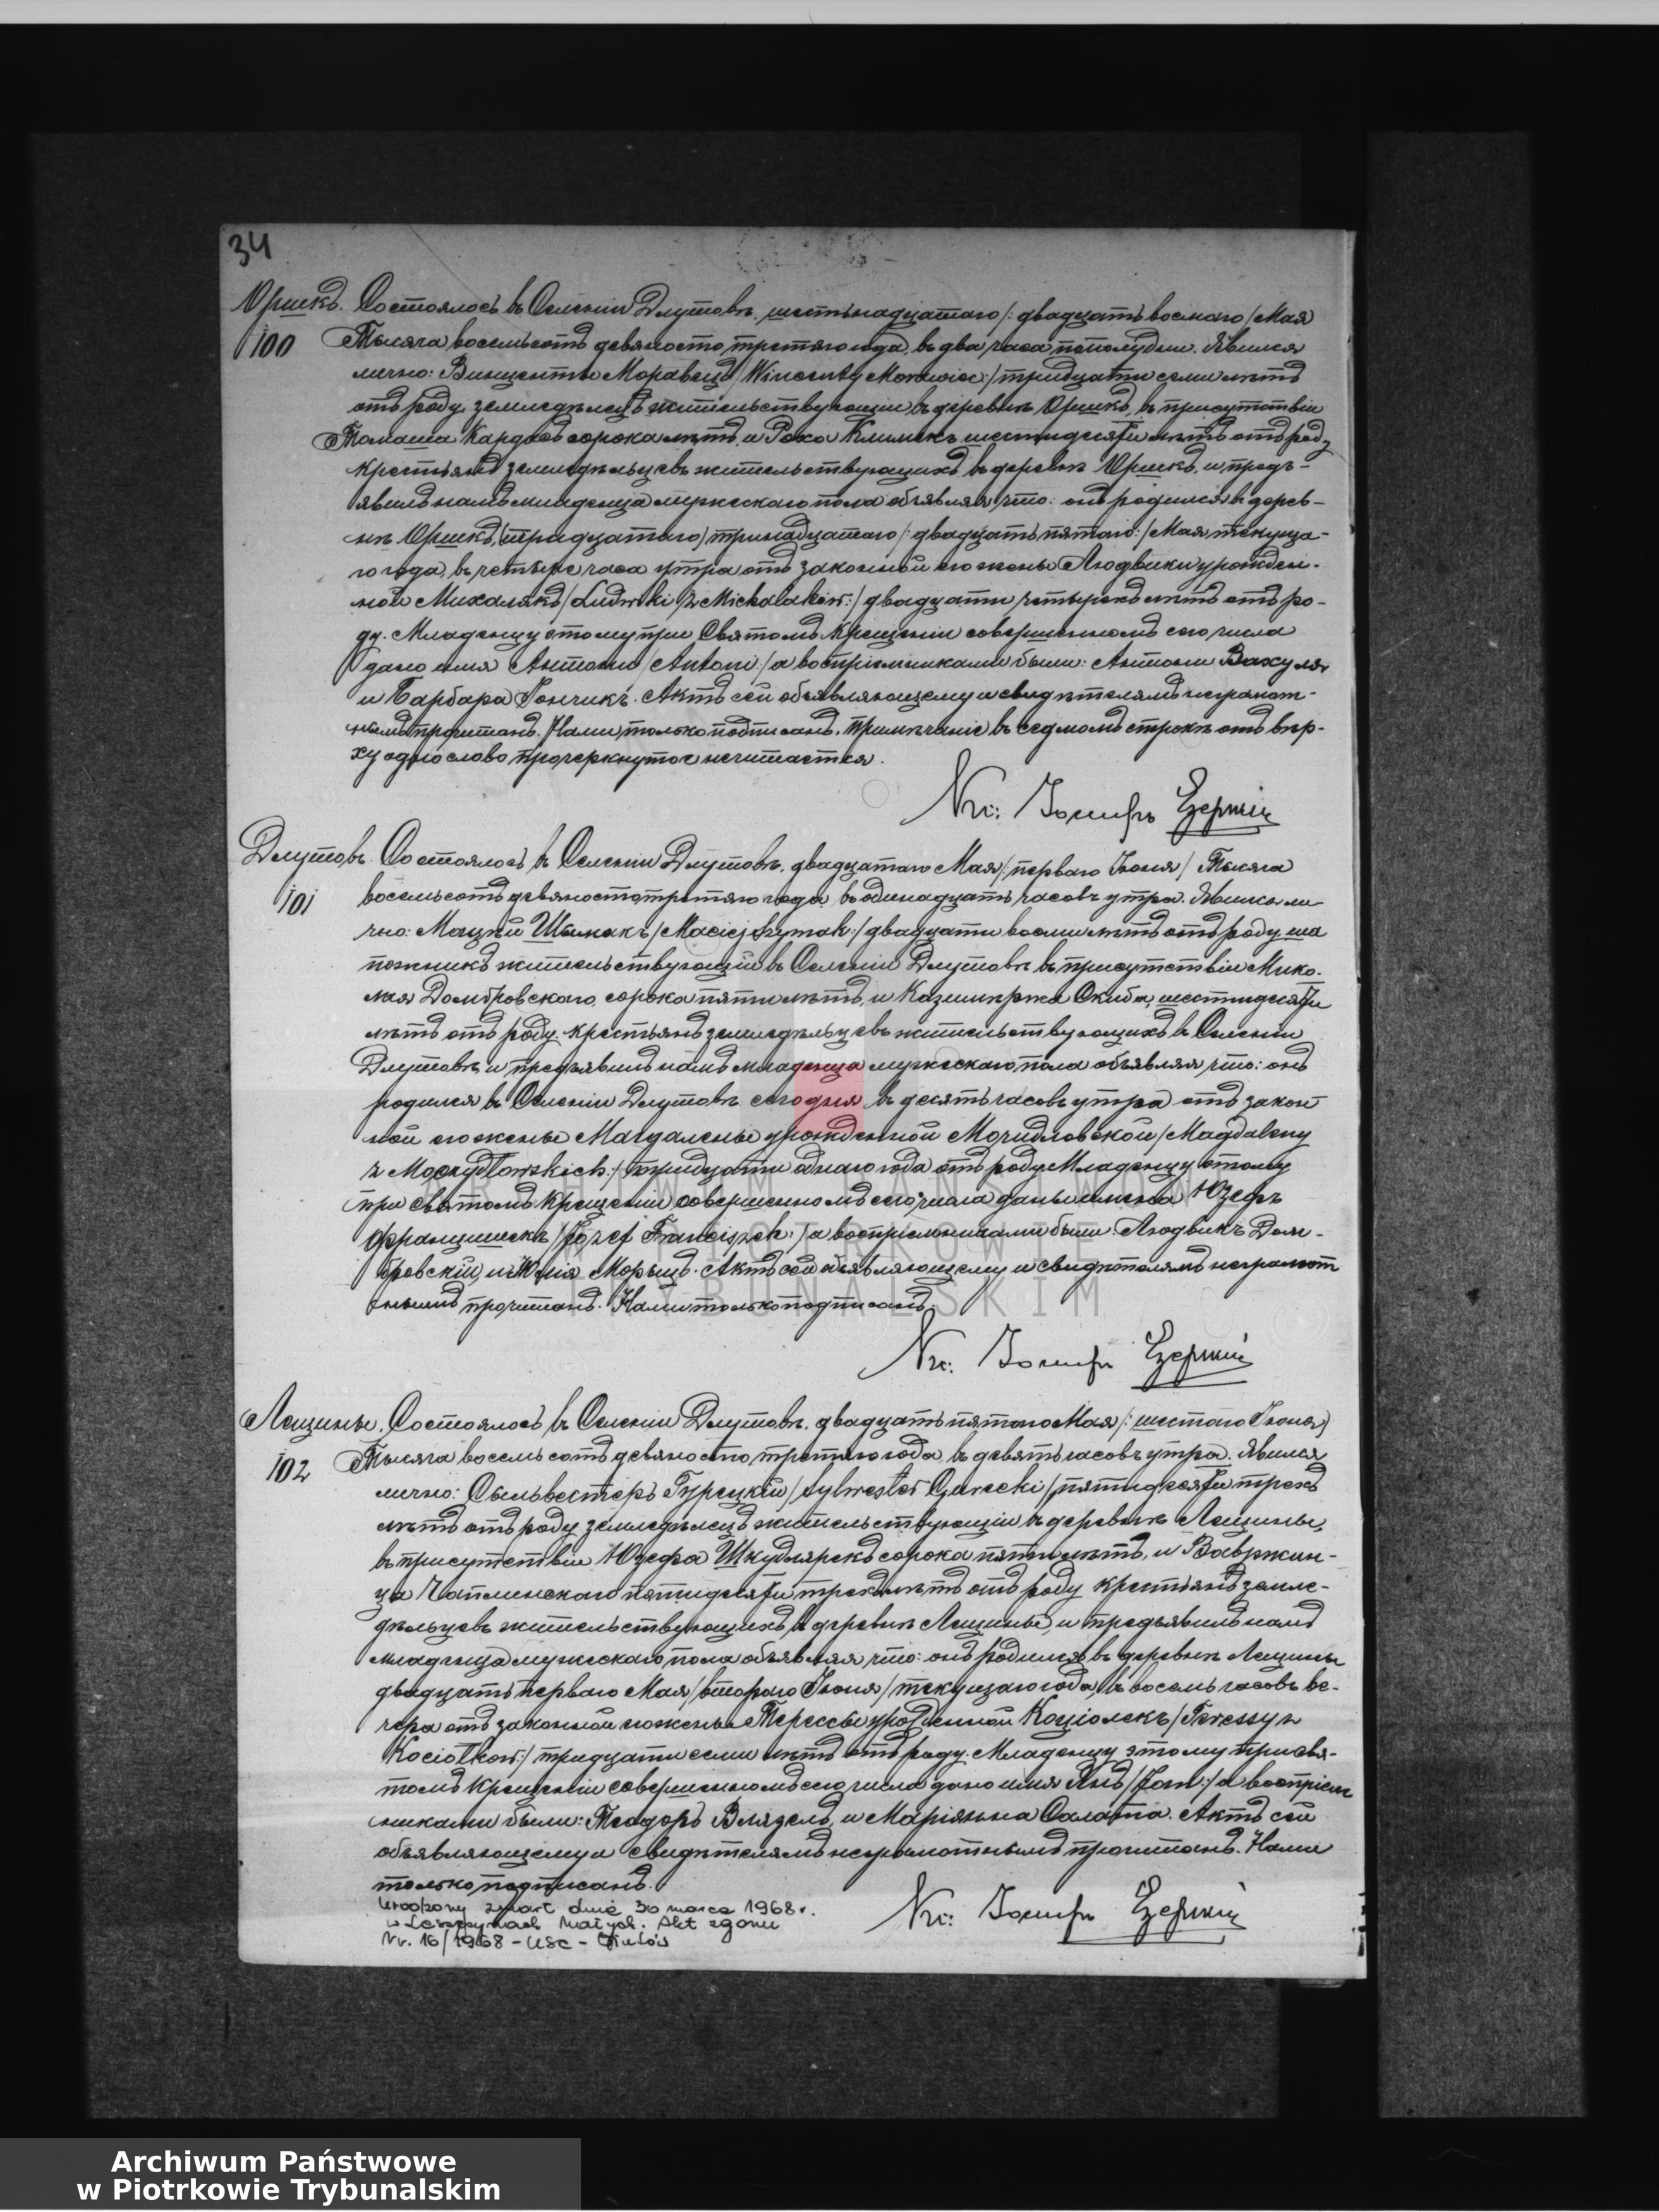 34
Оршкъ. Состоялось въ Селеніи Длутовѣ, шестьнадцатаго /: двадцать восьмаго / Мая
100 Тысяча восемьсотъ девяносто третяго года, въ два часа пополудни. Явился
лично: Винценты Моравецъ / Wincenty Morawiec :/ тридцати семи лѣтъ
отъ роду, земледѣлецъ жительствующій въ деревнѣ Оршкъ, въ присутствіи
Томаша Кардасъ сорока лѣтъ, и Роха Климекъ шестидесяти лѣтъ отъ роду
крестьянъ земледѣльцевъ жительствующихъ въ деревнѣ Оршкъ, и предъ-
явилъ намъ младенца мужескаго пола объявляя что: онъ родился въ дерев-
нѣ Оршкъ, (тридцатаго) тринадцатаго /: двадцать пятаго :/ Мая текуща-
го года, въ четыре часа утра отъ законной его жены Людвики урожден-
ной Михалякъ / Ludwiki z Michalaków :/ двадцати четырехъ лѣтъ отъ ро-
ду. Младенцу этому при Святомъ Крещеніи совершенномъ сего числа
дано имя Антони / Antoni :/ а воспріемниками были: Антони Вахуля
и Барбара Гончикъ. Актъ сей объявляющему и свидѣтелямъ неграмот-
нымъ прочитанъ. Нами только подписанъ. Примѣчаніе въ седмомъ строкѣ отъ вер-
ху одно слово прочеркнутое нечитается.
Кс: Іосифъ
Длутовъ. Состоялось въ Селеніи Длутовѣ, двадцатаго Мая /: перваго Іюня / Тысяча
101 восемьсотъ девяносто третяго года, въ одинадцать часовъ утра. Явился ли-
чно: Мацѣй Шымакъ / Maciej Szymak :/ двадцати восьми лѣтъ отъ роду са
пожникъ жительствующій въ Селеніи Длутовѣ въ присутствіи Мико-
лая Домбровскаго, сорока пяти лѣтъ, и Казимиржа Скиба, шестидесяти
лѣтъ отъ роду, крестьянъ земледѣльцевъ жительствующихъ въ Селеніи
Длутовѣ и предъявилъ намъ младенца мужескаго пола объявляя что: онъ
родился въ Селеніи Длутовѣ сегодня въ десять часовъ утра отъ закон
ной его жены Магдалены урожденной Мочидловской / Magdaleny
z Moczydłowskich :/ тридцати однаго года отъ роду Младенцу этому
при святомъ Крещеніи совершенномъ сего числа даны имена Юзефъ
Францишекъ / Józef Franciszek :/ а воспріемниками были: Людвикъ Дом-
бровскій, и Юлія Морыцъ. Актъ сей объявляющему и свидѣтелямъ неграмот
нымъ прочитанъ. Нами только подписанъ.
Кс: Іосифъ
Лещины. Состоялось въ Селеніи Длутовѣ, двадцать пятаго Мая /: шестаго Іюня)
102 Тысяча восемьсотъ девяносто третяго года, въ девять часовъ утра. Явился
лично: Сыльвестеръ Гурецкій / Sylwester Gurecki / пятидесяти трехъ
лѣтъ отъ роду земледѣлецъ жительствующій въ деревнѣ Лещины,
въ присутствіи Юзефа Шкудлярекъ сорока пяти лѣтъ, и Вавржин-
ца Чаплинскаго пятидесяти трехъ лѣтъ отъ роду крестьянъ земле-
дѣльцевъ жительствующихъ въ деревнѣ Лещины, и предъявилъ намъ
младенца мужескаго пола объявляя что: онъ родился въ деревнѣ Лещины
двадцать перваго Мая / втораго Іюня / текущаго года, въ восемь часовъ ве-
чера отъ законной его жены Терессы урожденной Коціолекъ / Teressy z
Kociołków :/ тридцати семи лѣтъ отъ роду. Младенцу этому при свя-
томъ Крещеніи совершенномъ сего числа дано имя Янъ / Jan :/ а воспріем
никами были: Теодоръ Влязелъ, и Маріянна Салата. Актъ сей
объявляющему и свидѣтелямъ неграмотнымъ прочитанъ. Нами
только подписанъ.
Urodzony zmarł dnia 30 marca 1968 r.
w Leszczynach Małych. Akt zgonu
Nr. 16/1968 - USC -
Кс: Іосифъ
ARCHIWUM PAŃSTWOWE
W PIOTRKOWIE
TRYBUNALSKIM
Archiwum Państwowe
w Piotrkowie Trybunalskim